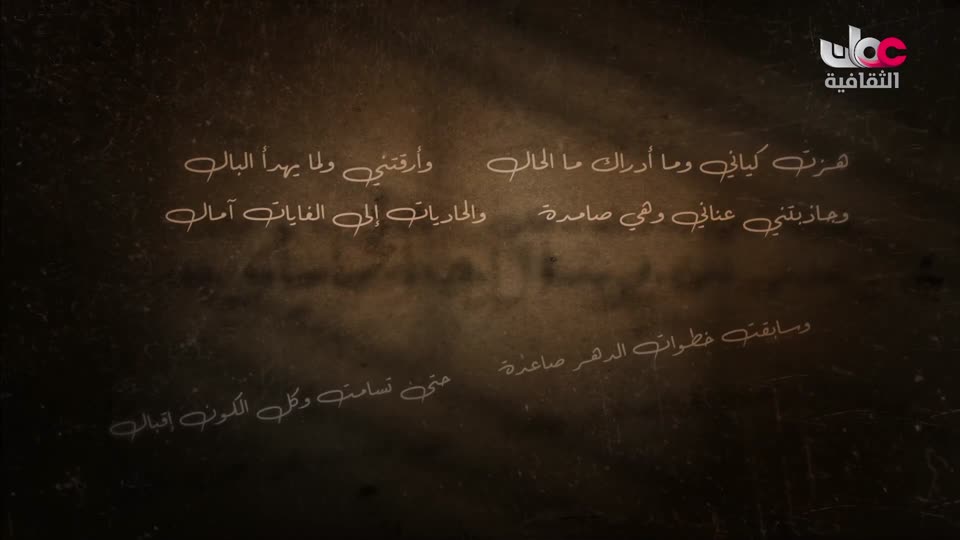 عمان
الثقافية
هزت كياني وما أدراك ما الحال وأرقتني ولما يهدأ البال
وجاذبتني عناني وهي صامدة والحاديات إلى الغايات آمال
وسابقت خطوات الدهر صاعدة حتى تسامت وكل الكون إقبال